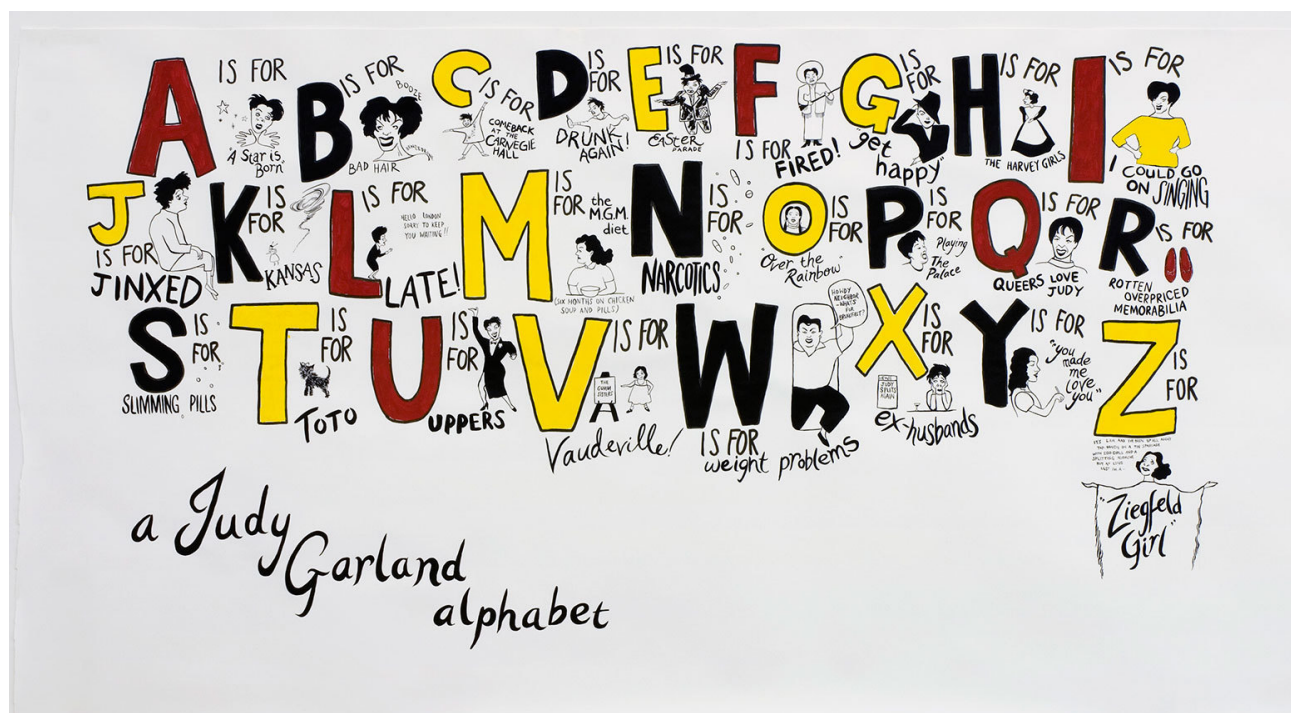 A IS FOR "A Star is Born"
B IS FOR BOOZE
BAD HAIR
C IS FOR COMEBACK AT THE CARNEGIE HALL
D IS FOR DRUNK AGAIN!
E IS FOR EASTER PARADE
F IS FOR FIRED!
G IS FOR get happy"
H IS FOR THE HARVEY GIRLS
I IS FOR I COULD GO ON SINGING
J IS FOR JINXED
K IS FOR KANSAS
L IS FOR LATE!
HELLO LONDON SORRY TO KEEP YOU WAITING!!
M IS FOR the M.G.M. diet
(SIX MONTHS ON CHICKEN SOUP AND PILLS)
N IS FOR NARCOTICS
O IS FOR "Over the Rainbow"
P IS FOR Playing The Palace
Q IS FOR QUEERS LOVE JUDY
R IS FOR ROTTEN OVERPRICED MEMORABILIA
S IS FOR SLIMMING PILLS
T IS FOR TOTO
U IS FOR UPPERS
V IS FOR Vaudeville!
THE GUMM SISTERS
W IS FOR weight problems
HOWDY NEIGHBOR WHAT'S FOR BREAKFAST?
X IS FOR ex-husbands
JUDY SPLITS AGAIN
Y IS FOR "you made me love you"
Z IS FOR "Ziegfeld Girl"
a Judy
Garland
alphabet